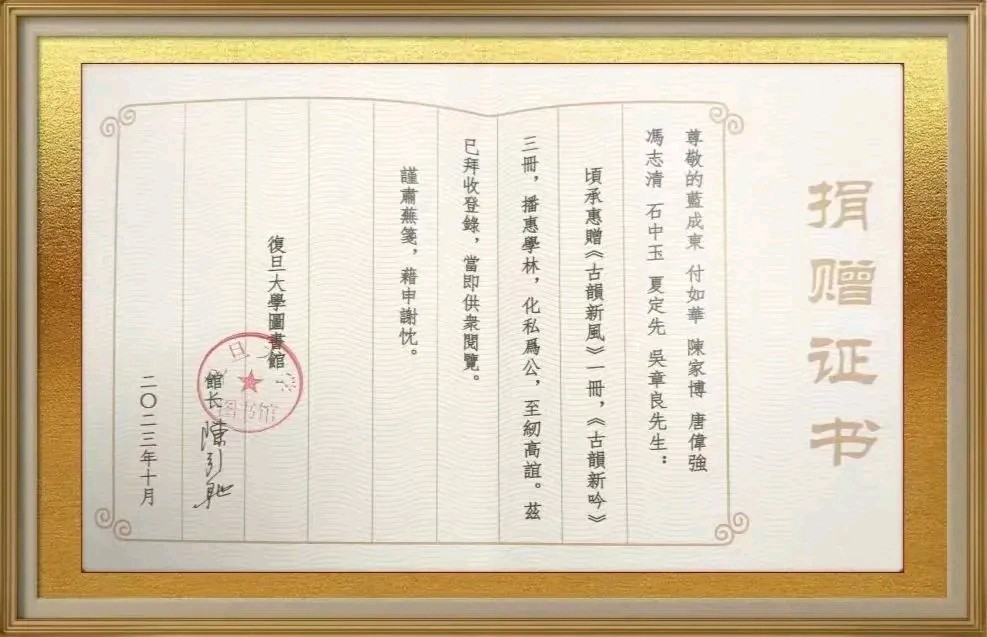 捐赠证书
尊敬的藍成東 付如華 陳家博 唐偉強
馮志清 石中玉 夏定先 吳章良先生：
頃承惠贈《古韻新風》一冊，《古韻新吟》
三冊，播惠學林，化私爲公，至紉高誼。茲
已拜收登錄，當即供衆閱覽。
謹肅蕪箋，藉申謝忱。
復旦大學圖書館
館长 陳引馳
二〇二三年十月
旦大
图书馆